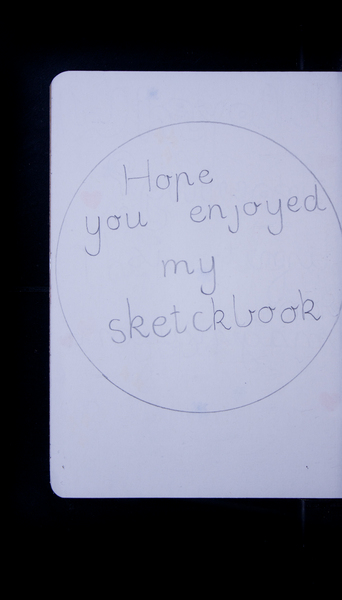 Hope
you enjoyed
my
sketckbook